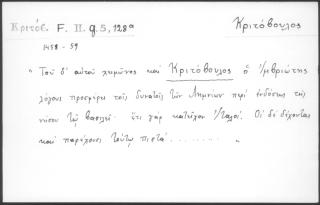 Κριτόβ. F. II. g.5, 128a
Κριτόβουλος
1458 - 59
" Τοῦ δ' αὐτοῦ χειμῶνος καὶ Κριτόβουλος ὁ Ἰμβριώτης
λόγους προσφέρει τοῖς δυνατοῖς τῶν Λημνίων περὶ ἐνδόσεως τῆς
νήσου τῷ βασιλεῖ· ἔτι γὰρ κατεῖχον Ἰταλοί. Οἱ δὲ δέχονται
καὶ παρέχουσι τούτῳ πιστά . . . . . . . . "